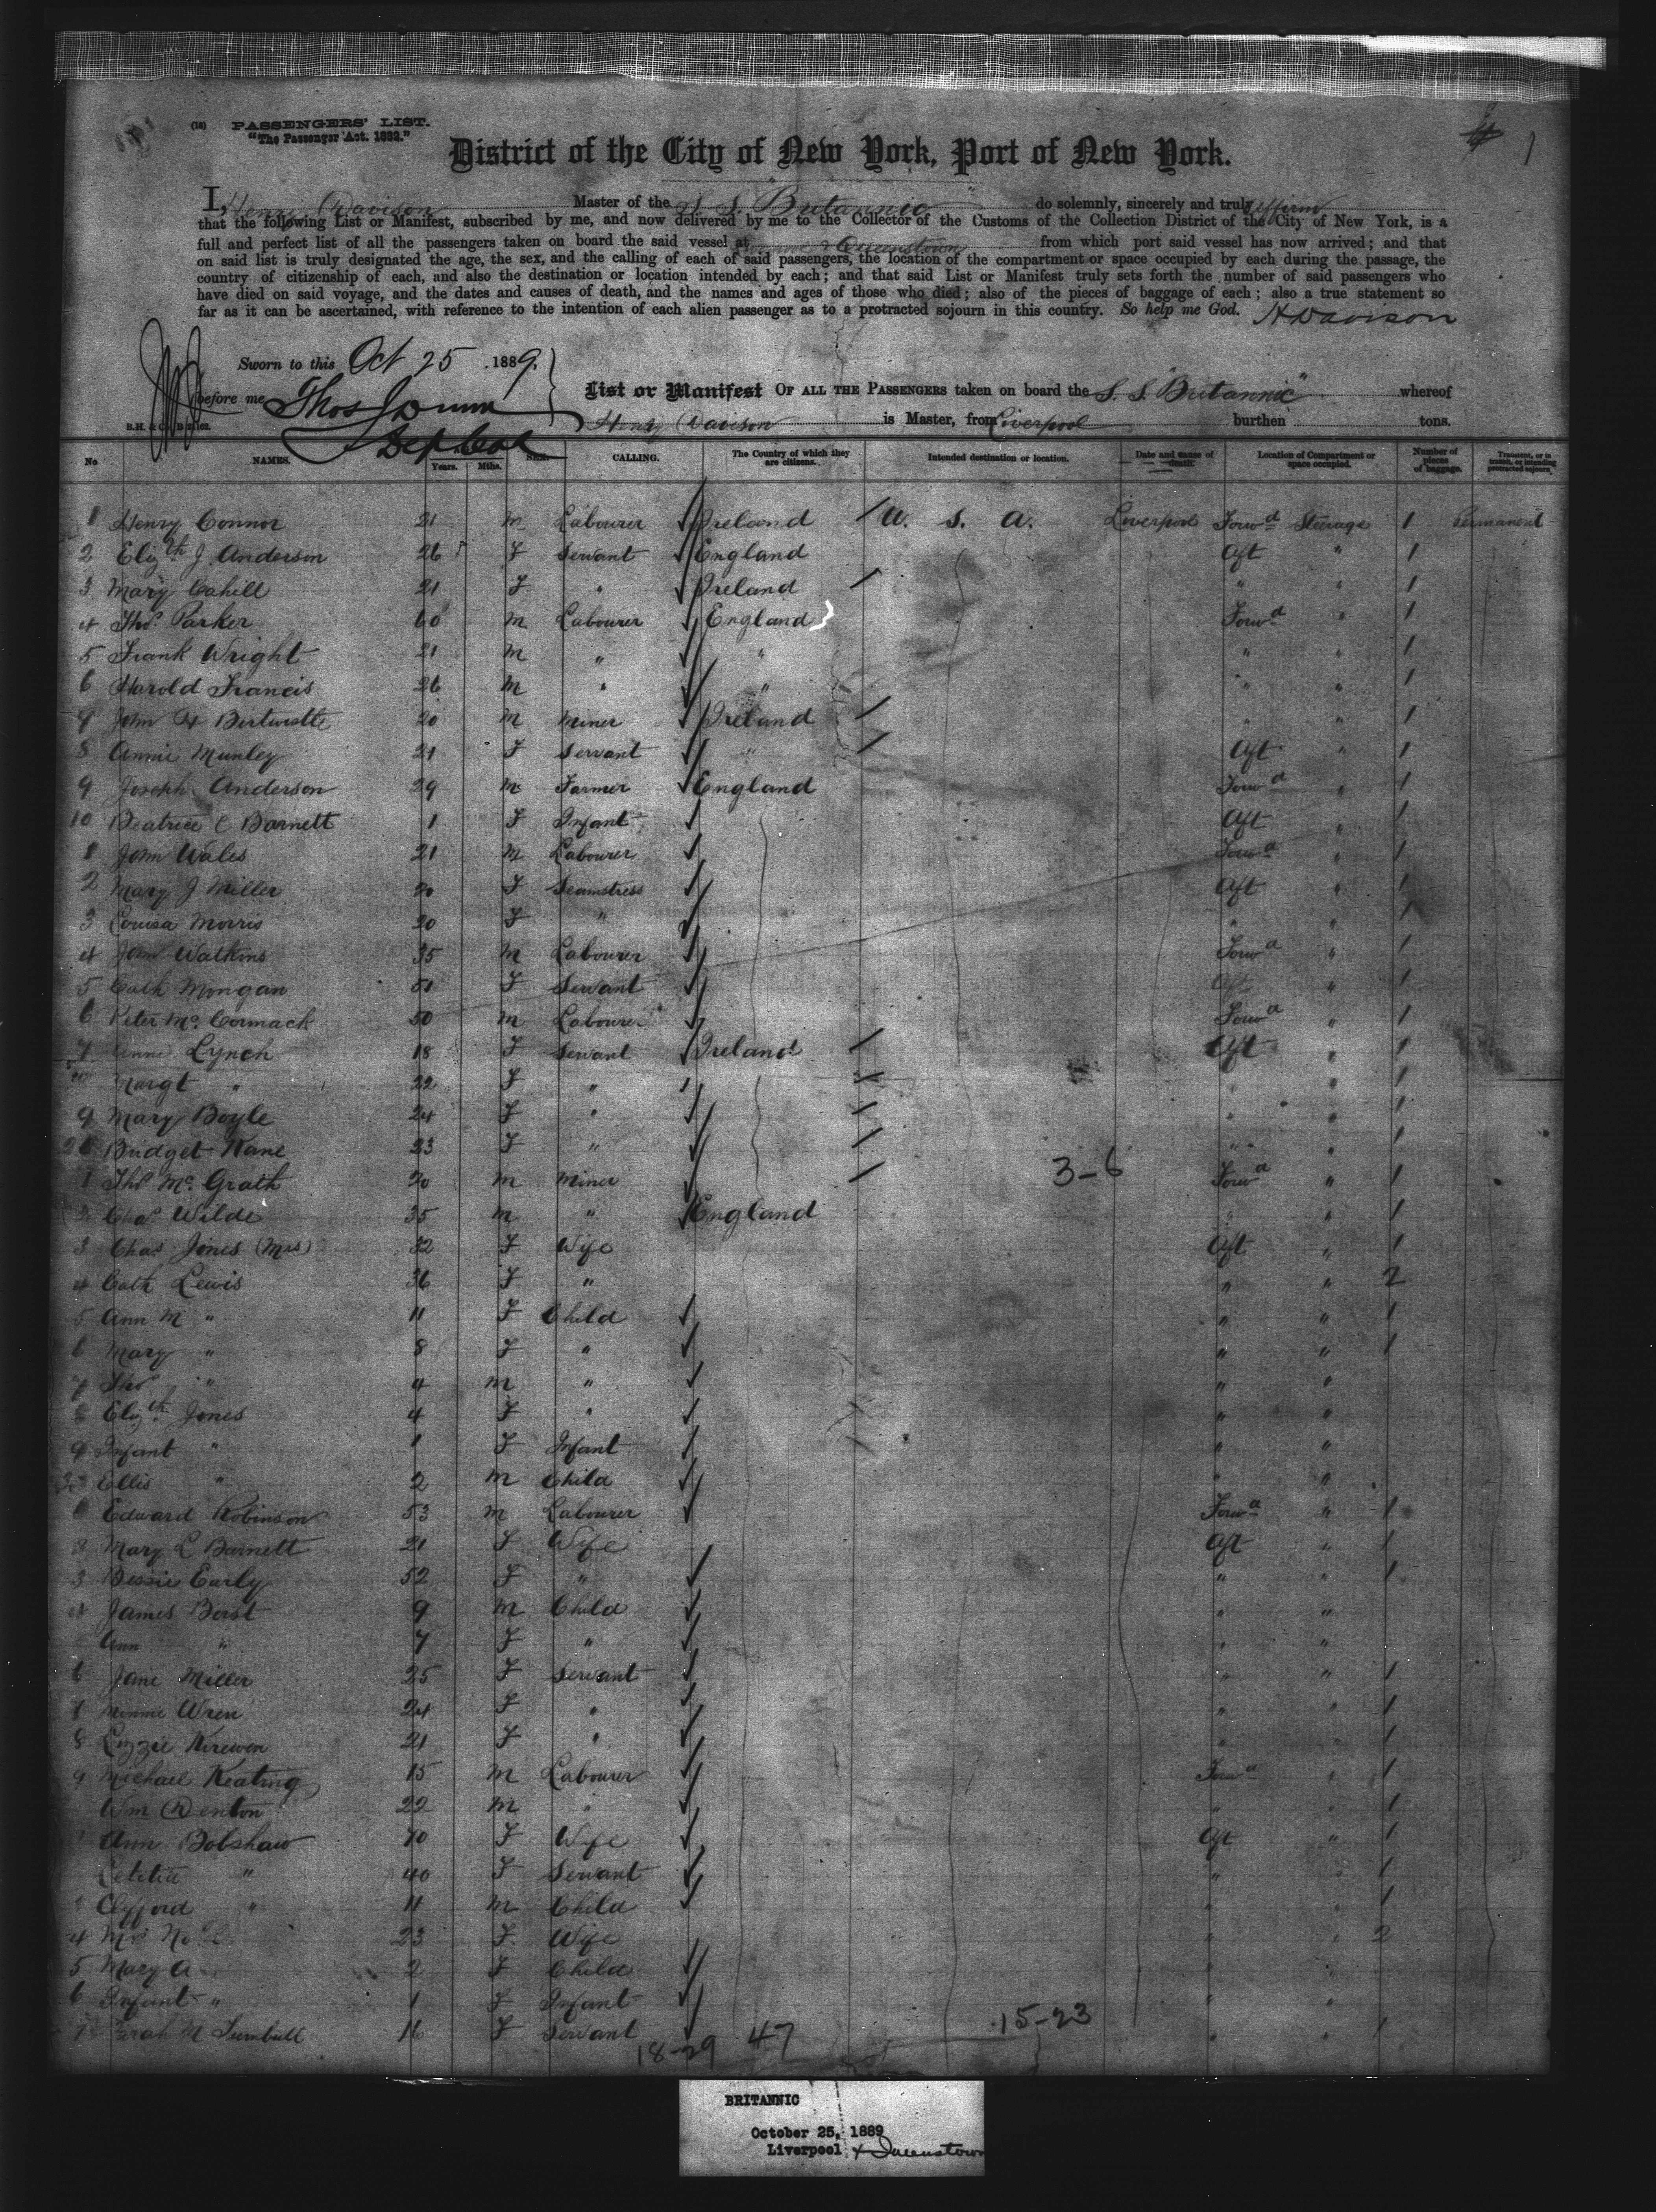 (18) PASSENGERS' LIST.
"The Passenger Act. 1882."
District of the City of New York, Port of New York.
I, Henry Davison Master of the S. S. "Britannic" do solemnly, sincerely and truly affirm
that the following List or Manifest, subscribed by me, and now delivered by me to the Collector of the Customs of the Collection District of the City of New York, is a
full and perfect list of all the passengers taken on board the said vessel at & Queenstown from which port said vessel has now arrived; and that
on said list is truly designated the age, the sex, and the calling of each of said passengers, the location of the compartment or space occupied by each during the passage, the
country of citizenship of each, and also the destination or location intended by each; and that said List or Manifest truly sets forth the number of said passengers who
have died on said voyage, and the dates and causes of death, and the names and ages of those who died; also of the pieces of baggage of each; also a true statement so
far as it can be ascertained, with reference to the intention of each alien passenger as to a protracted sojourn in this country. So help me God. H Davison
Sworn to this Oct 25 1889.
before me Thos Dunn
Dep Col
List or Manifest OF ALL THE PASSENGERS taken on board the S. S. "Britannic" whereof
Henry Davison is Master, from Liverpool burthen tons.
No NAMES. Years. Mths. SEX. CALLING. The Country of which they are citizens. Intended destination or location. Date and cause of death. Location of Compartment or space occupied. Number of pieces of baggage. Transient, or in transit, or intending protracted sojourn.
1 Henry Connor 21 m Labourer Ireland U. S. A. Liverpool Forwd Steerage 1 Permanent
2 Elizth J Anderson 26 F Servant England Aft " 1
3 Mary Cahill 21 F " Ireland " " 1
4 Thos Parker 60 m Labourer England Forwd " 1
5 Frank Wright 21 m " " " " 1
6 Harold Francis 26 m " " " " 1
7 John H Birtwistle 20 m Miner Ireland " " 1
8 Annie Munley 21 F Servant " Aft " 1
9 Joseph Anderson 29 m Farmer England Forwd " 1
10 Beatrice C Barnett 1 F Infant Aft "
1 John Wales 21 m Labourer Forwd " 1
2 Mary J Miller 20 F Seamstress Aft " 1
3 Louisa Morris 20 F " " " 1
4 John Watkins 35 m Labourer Forwd " 1
5 Cath Mongan 51 F Servant Aft " 1
6 Peter Mc Cormack 50 m Labourer Forwd " 1
7 Anne Lynch 18 F Servant Ireland Aft " 1
Margt " 22 F " " " 1
9 Mary Boyle 24 F " " " 1
20 Bridget Kane 23 F " " " 1
1 Thos Mc Grath 20 m Miner 3-6 Forwd " 1
2 Chas Wilde 35 m " England " " 1
3 Chas Jones (Mrs) 32 F Wife Aft " 1
4 Cath Lewis 36 F " " " 2
5 Ann M " 11 F Child " " 1
6 Mary " 8 F " " " 1
7 Thos " 4 m " " "
8 Elizth Jones 4 F " " "
9 Infant " 1 F Infant " "
30 Ellis " 2 m Child " "
1 Edward Robinson 53 m Labourer Forwd " 1
2 Mary L Barnett 21 F Wife Aft " 1
3 Bessie Early 52 F " " " 1
4 James Borst 9 m Child " "
Ann " 7 F " " "
6 Jane Miller 25 F Servant " " 1
Minnie Wren 24 F " " " 1
8 Lizzie Kirewen 21 F " " " 1
9 Michael Keating 15 m Labourer Forwd " 1
Wm Denton 22 m " " " 1
1 Ann Bobshaw 70 F Wife Aft " 1
Letitia " 40 F Servant " " 1
Clyfford " 11 m Child " " 1
4 Mrs 23 F Wife " " 2
5 Mary A 2 F Child " "
6 Infant " 1 F Infant " "
7 Sarah M Turnbull 16 F Servant " " 1
15-23
18-29 47
BRITANNIC
October 25, 1889
Liverpool & Queenstown